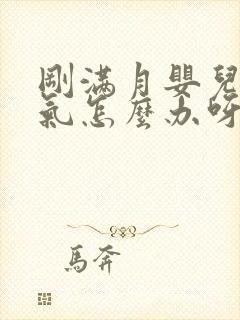 剛滿月嬰兒
氣怎麼办呀
馬奔